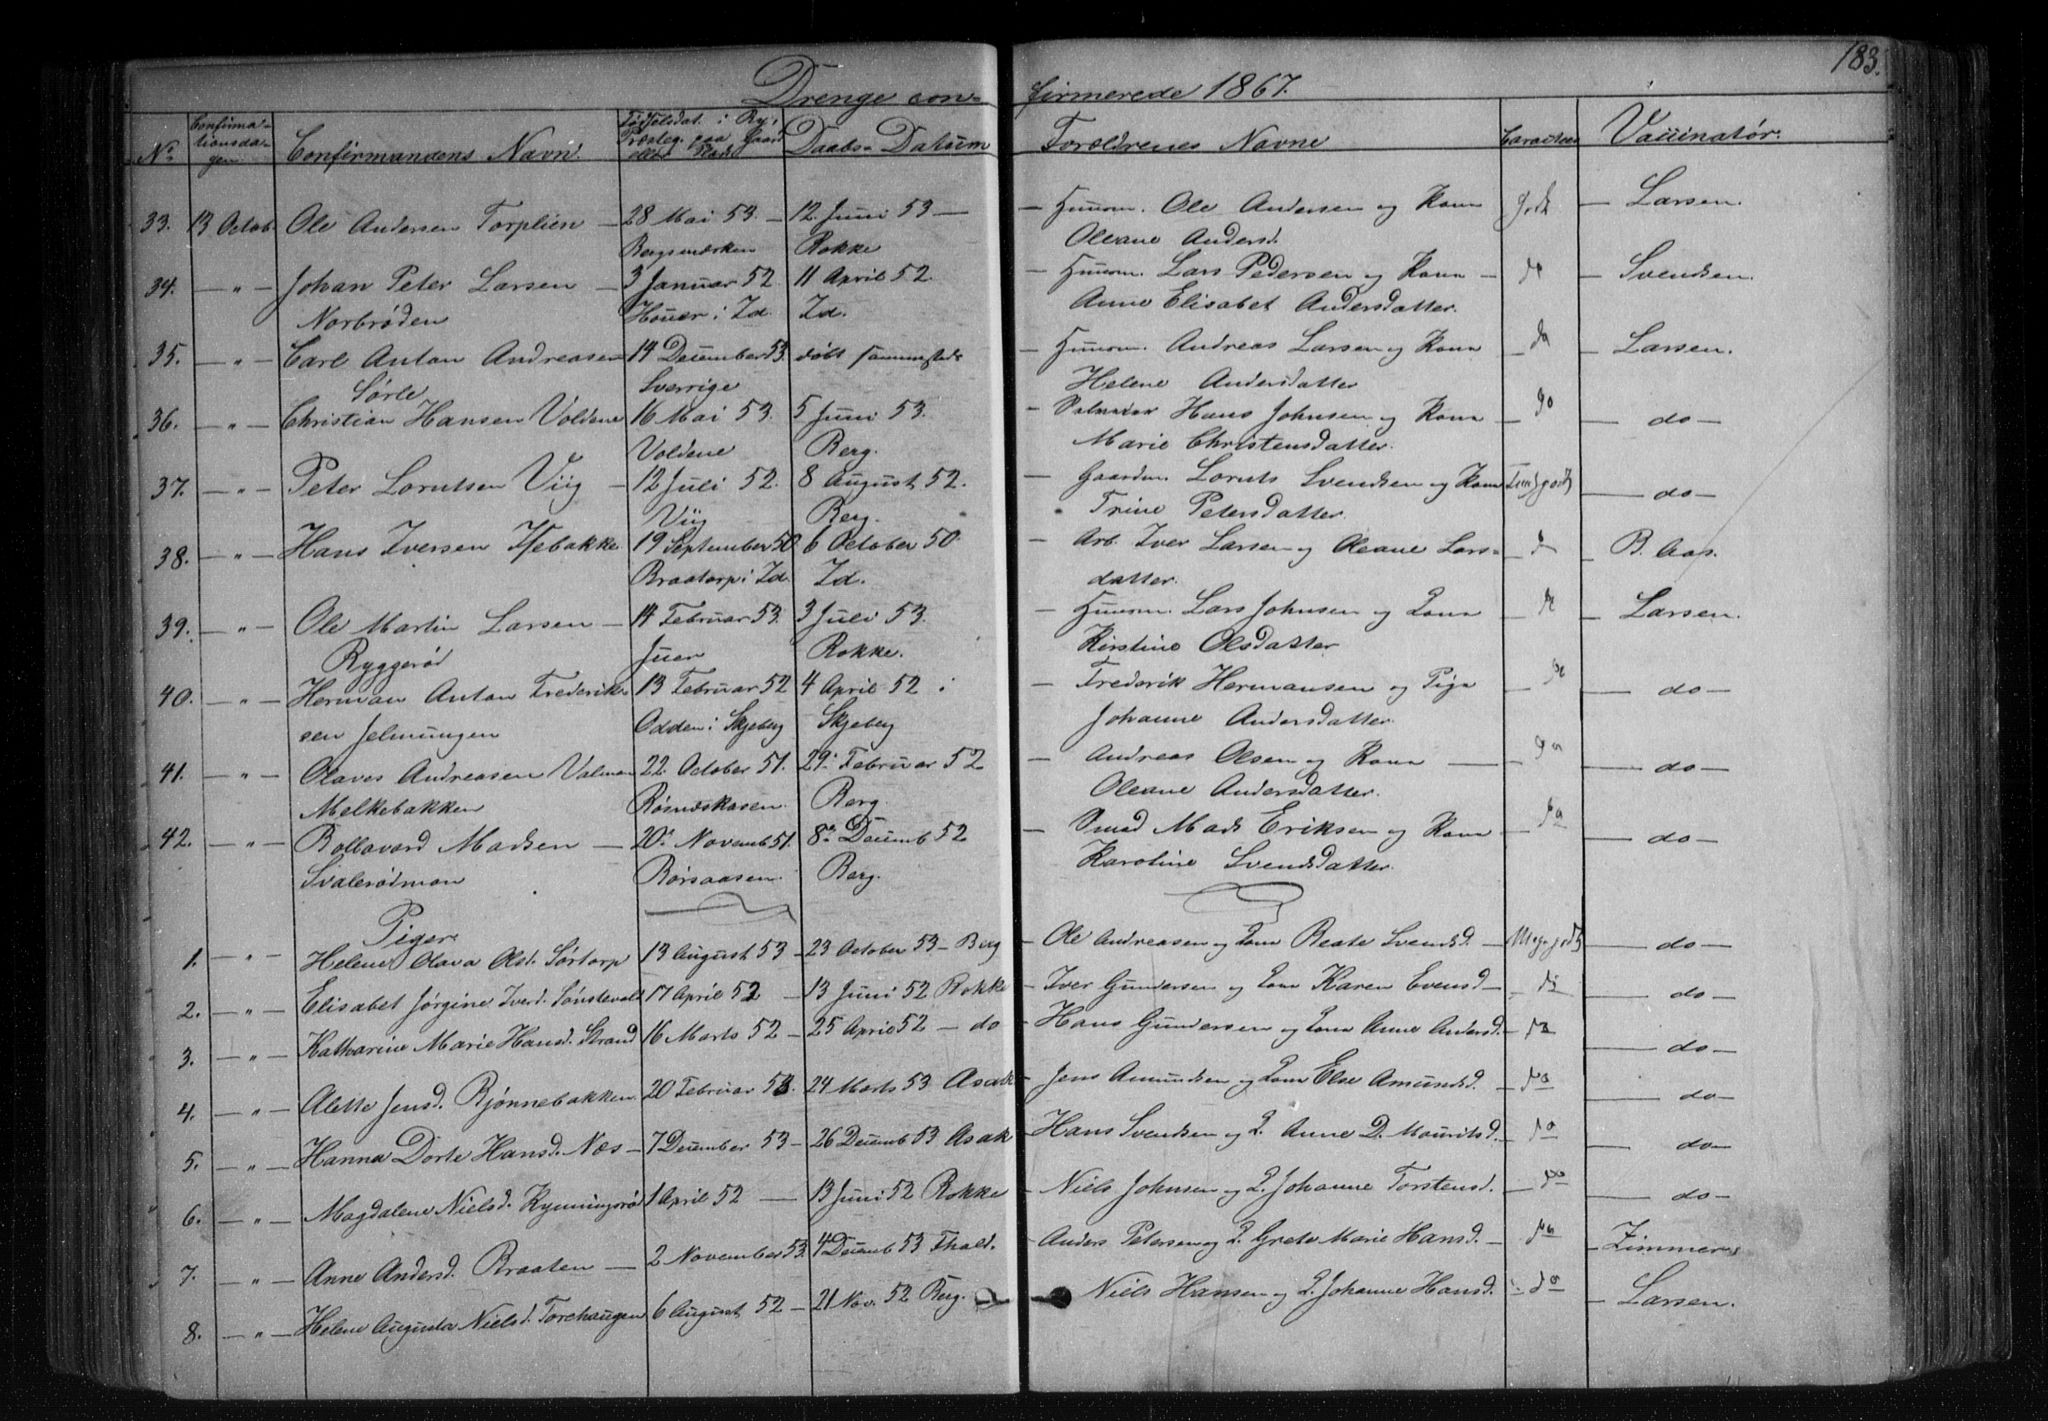 183.
Drenge con- firmerede 1867.
No. Confirma-tionsda-gen Confirmandens Navn Daabs-Datum Forældrenes Navne Caracteer Vaccinatør.
33. 13 Octob. Ole Andersen Torplien — 28 Mai 53. — 12. Juni 53 — — Huusm. Ole Andersen og Kone Godt — Larsen.
Bergsmærken Rokke Oleane Andersd.
34. — " — Johan Peter Larsen — 3 Januar 52 11 April 52. — Huusm. Lars Pedersen og Kone — do — Svendsen.
Norbrøden Houer i Id. Id. Anne Elisabet Andersdatter.
35. — " — Carl Anton Andreasen 14 December 53. døbt sammesteds — Huusm. Andreas Larsen og Kone — do — Larsen.
Sørle Sverrige Helene Andersdatter
36. — " — Christian Hansen Voldene 16 Mai 53. 5 Juni 53. — Hans Johnsen og Kone — do — do —
Voldene Berg. Marie Christensdatter.
37. — " — Peter Lorntsen Viig — 12 Juli 52. 8 August 52. — Gaardm. Lornts Svendsen og Kone — do —
Viig Berg. Trine Petersdatter.
38. — " — Hans Iversen Isebakke 19 September 50 6 October 50. — Arb. Iver Larsen og Oleane Lars- — do — B. Aas.
Braatorp i Id. Id. datter.
39. — " — Ole Martin Larsen — 14 Februar 53. 3 Juli 53. — Huusm. Lars Johnsen og Kone — do — Larsen.
Ryggerød Juer Rokke. Kirstine Olsdatter
40. — " — Herman Anton Frederik- 13 Februar 52 4 April 52 i — Frederik Hermansen og Pige — do — do —
sen Jelmungen Odden i Skjeberg Skjeberg Johanne Andersdatter.
41. — " — Olaves Andreasen Valmen 22. October 51. 29. Februar 52 — Andreas Olsen og Kone — do — do —
Melkebakken Røsneskasen. Berg. Oleane Andersdatter.
42. — " — Bollavard Madsen — 20. Novemb 51. 8. Decemb 52 — Smed Mads Eriksen og Kone — do — do —
Svalerødmon Rørsaasen. Berg. Karoline Svendsdatter.
Piger.
1. — " — Helene Olava Olsd. Sørtorp 13 August 53 — 23 October 53 — Berg — Ole Andreasen og Kone Beate Svendsd. — Meg. godt — do —
2. — " — Elisabet Jørgine Iversd. Sønstevold 17 April 52 — 13 Juni 52 Rokke — Iver Gundersen og Kone Karen Evensd — do — do —
3. — " — Katharine Marie Hansd. Strand 16 Marts 52 — 25 April 52 — do — Hans Gundersen og Kone Anne Andersd. — do — do —
4. — " — Alette Jensd. Bjønnebakken 20 Februar 53. 24 Marts 53 Asak — Jens Amundsen og Kone Else Amundsd. — do — do —
5. — " — Hanna Dorte Hansd. Næs — 7 December 53 — 26 Decemb 53 Asak — Hans Svendsen og K. Anne D. Mouritsd. — do — do —
6. — " — Magdalene Nielsd. Kynningsrød 1 April 52 — 13 Juni 52 Rokke — Niels Johnsen og K. Johanne Torstensd. — do — do —
7. — " — Anne Andersd. Braaten — 2 November 53. 4 Decemb 53 Fhald. — Anders Petersen og K. Grete Marie Hansd. — do — Zimmer
8. — " — Helene Augusta Nielsd. Torehaugen 6 August 52 — 21 Nov. 52 Berg. — Niels Hansen og K. Johanne Hansd. — do — Larsen.